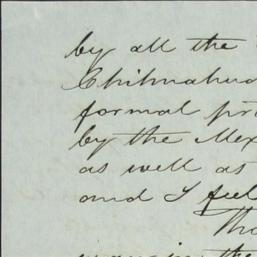 by all the
Chihuahua
formal pr
by the Mex
as well as
and I feel
Tha
the